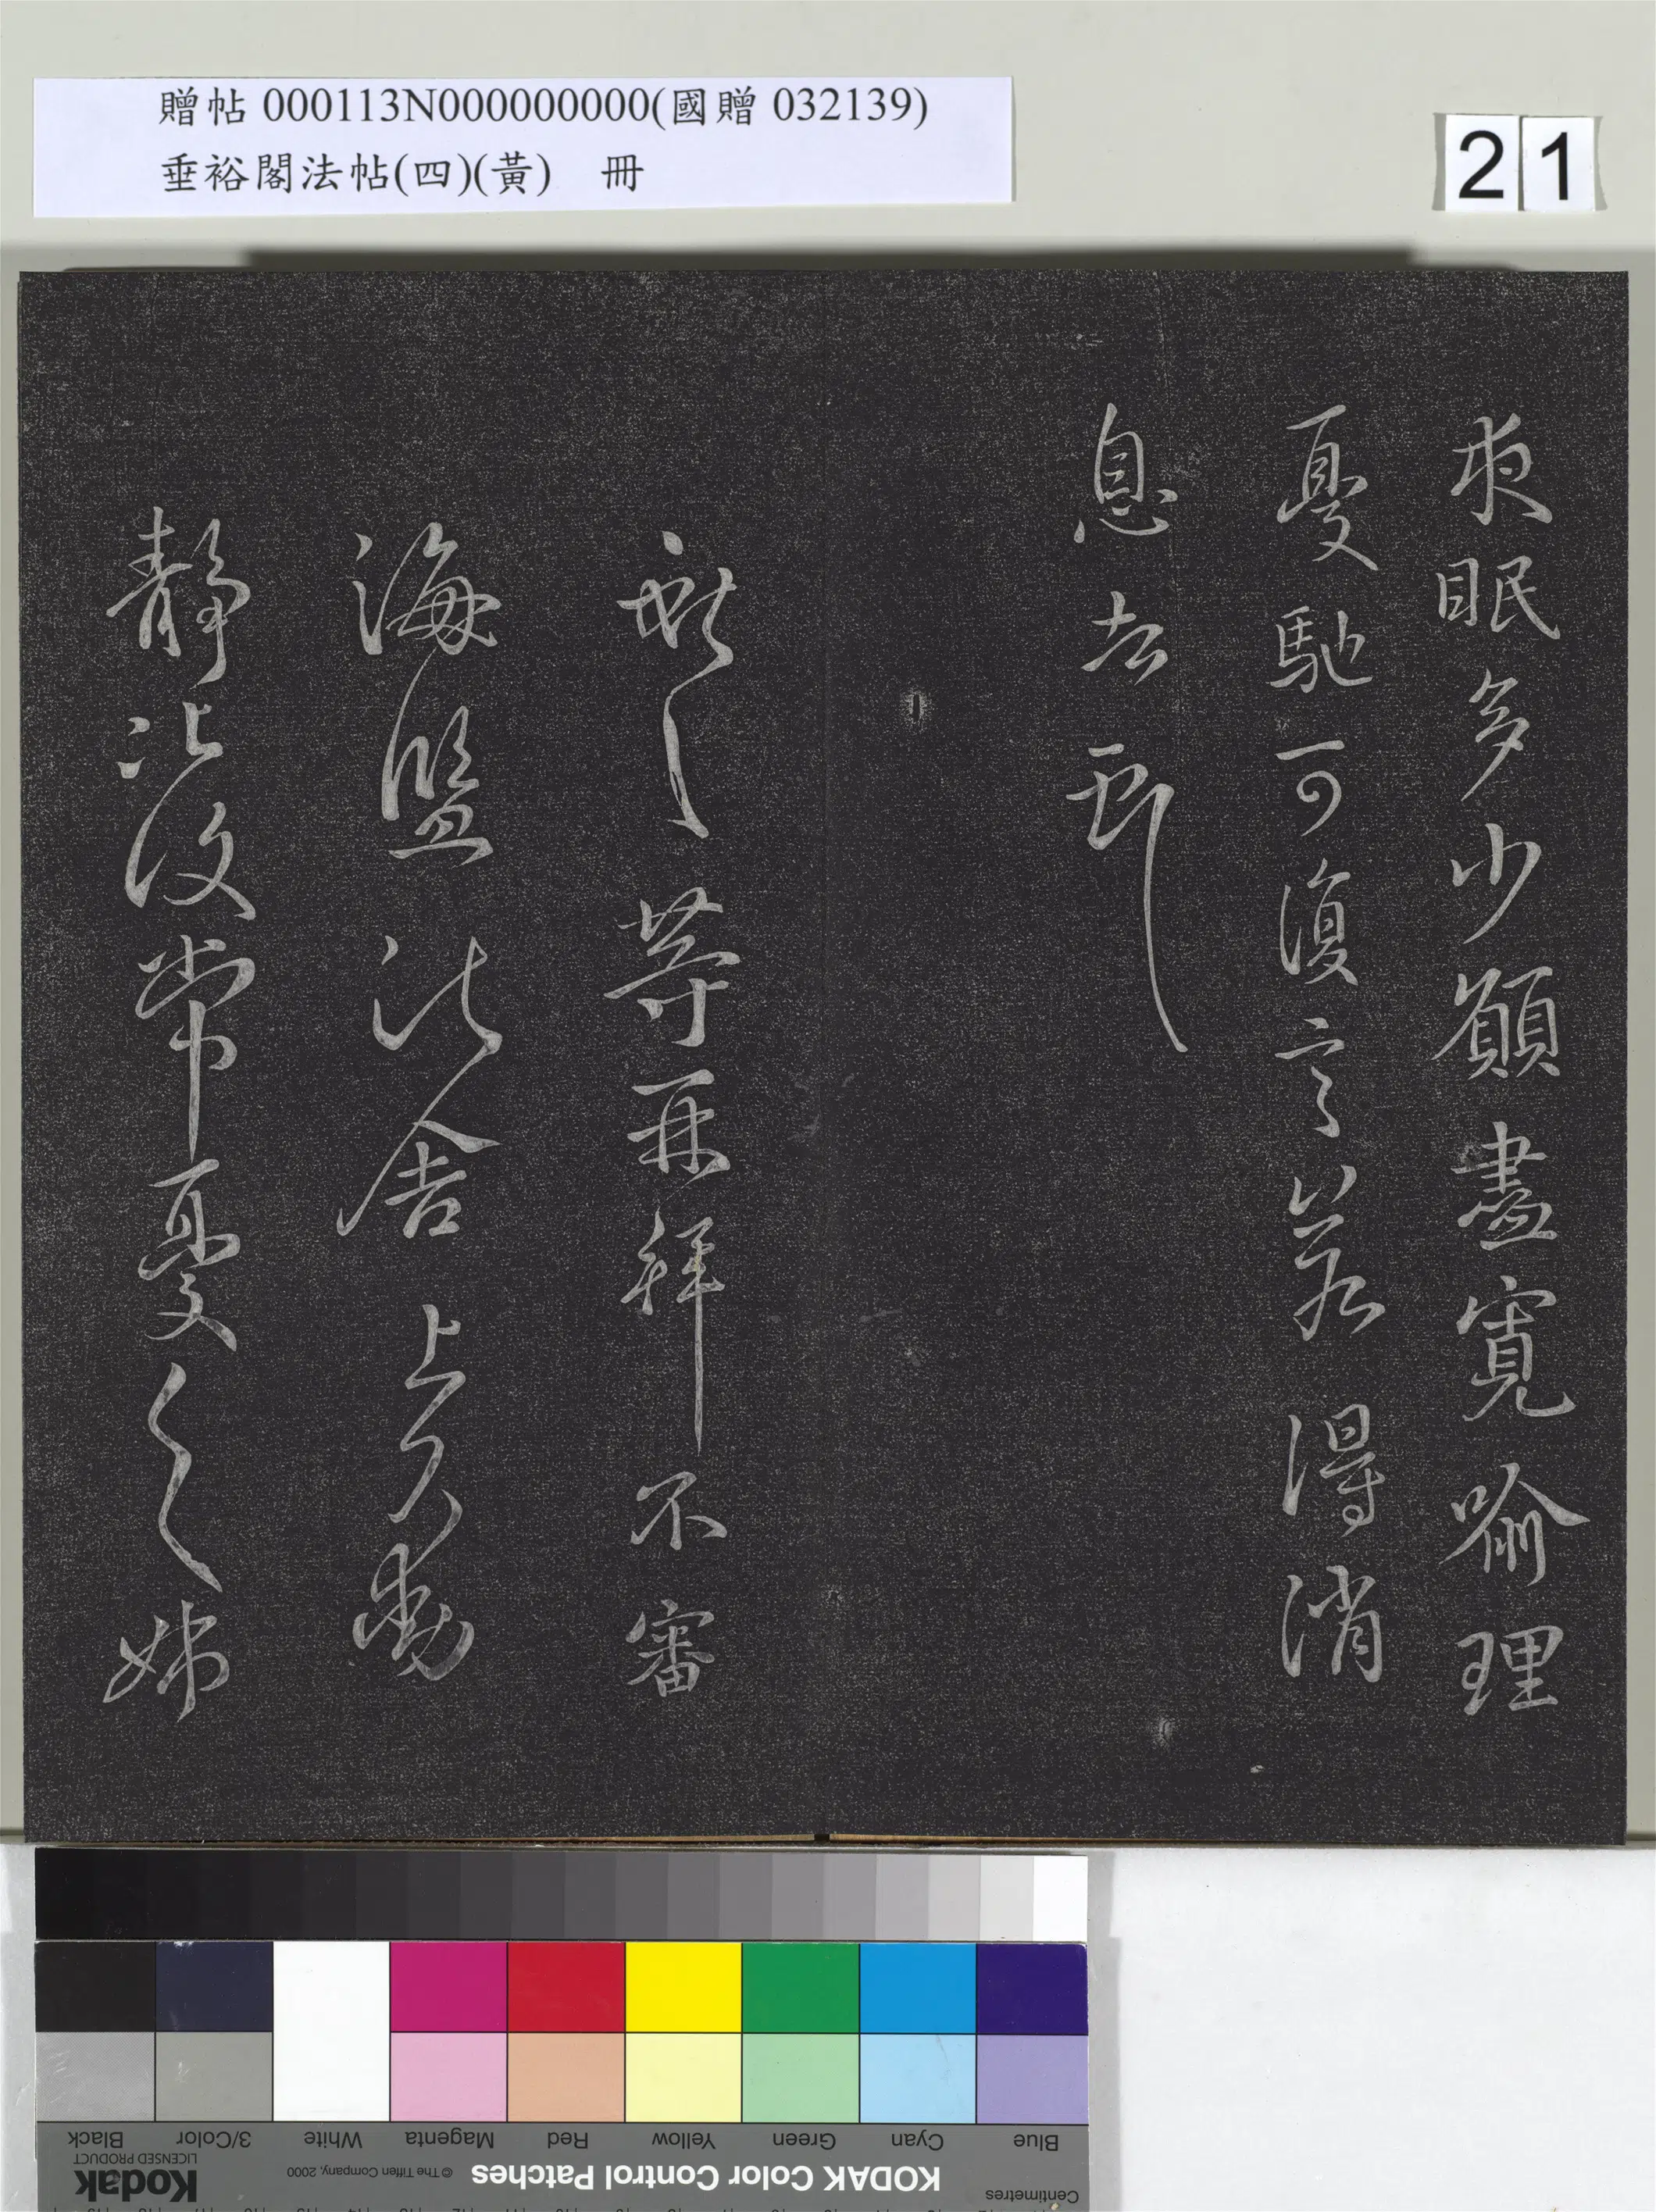 贈帖 000113N000000000(國贈 032139)
垂裕閣法帖(四)(黃) 冊
21
夜眠多少願盡寬喻理
憂馳可復言若得消
息去耶
獻之等再拜不審
海鹽諸舍上下動
靜比復常憂之姊
Black
3/Color
White
Magenta
Red
Yellow
Green
Cyan
Blue
Kodak
LICENSED PRODUCT
© The Tiffen Company, 2000
KODAK Color Control Patches
Centimetres